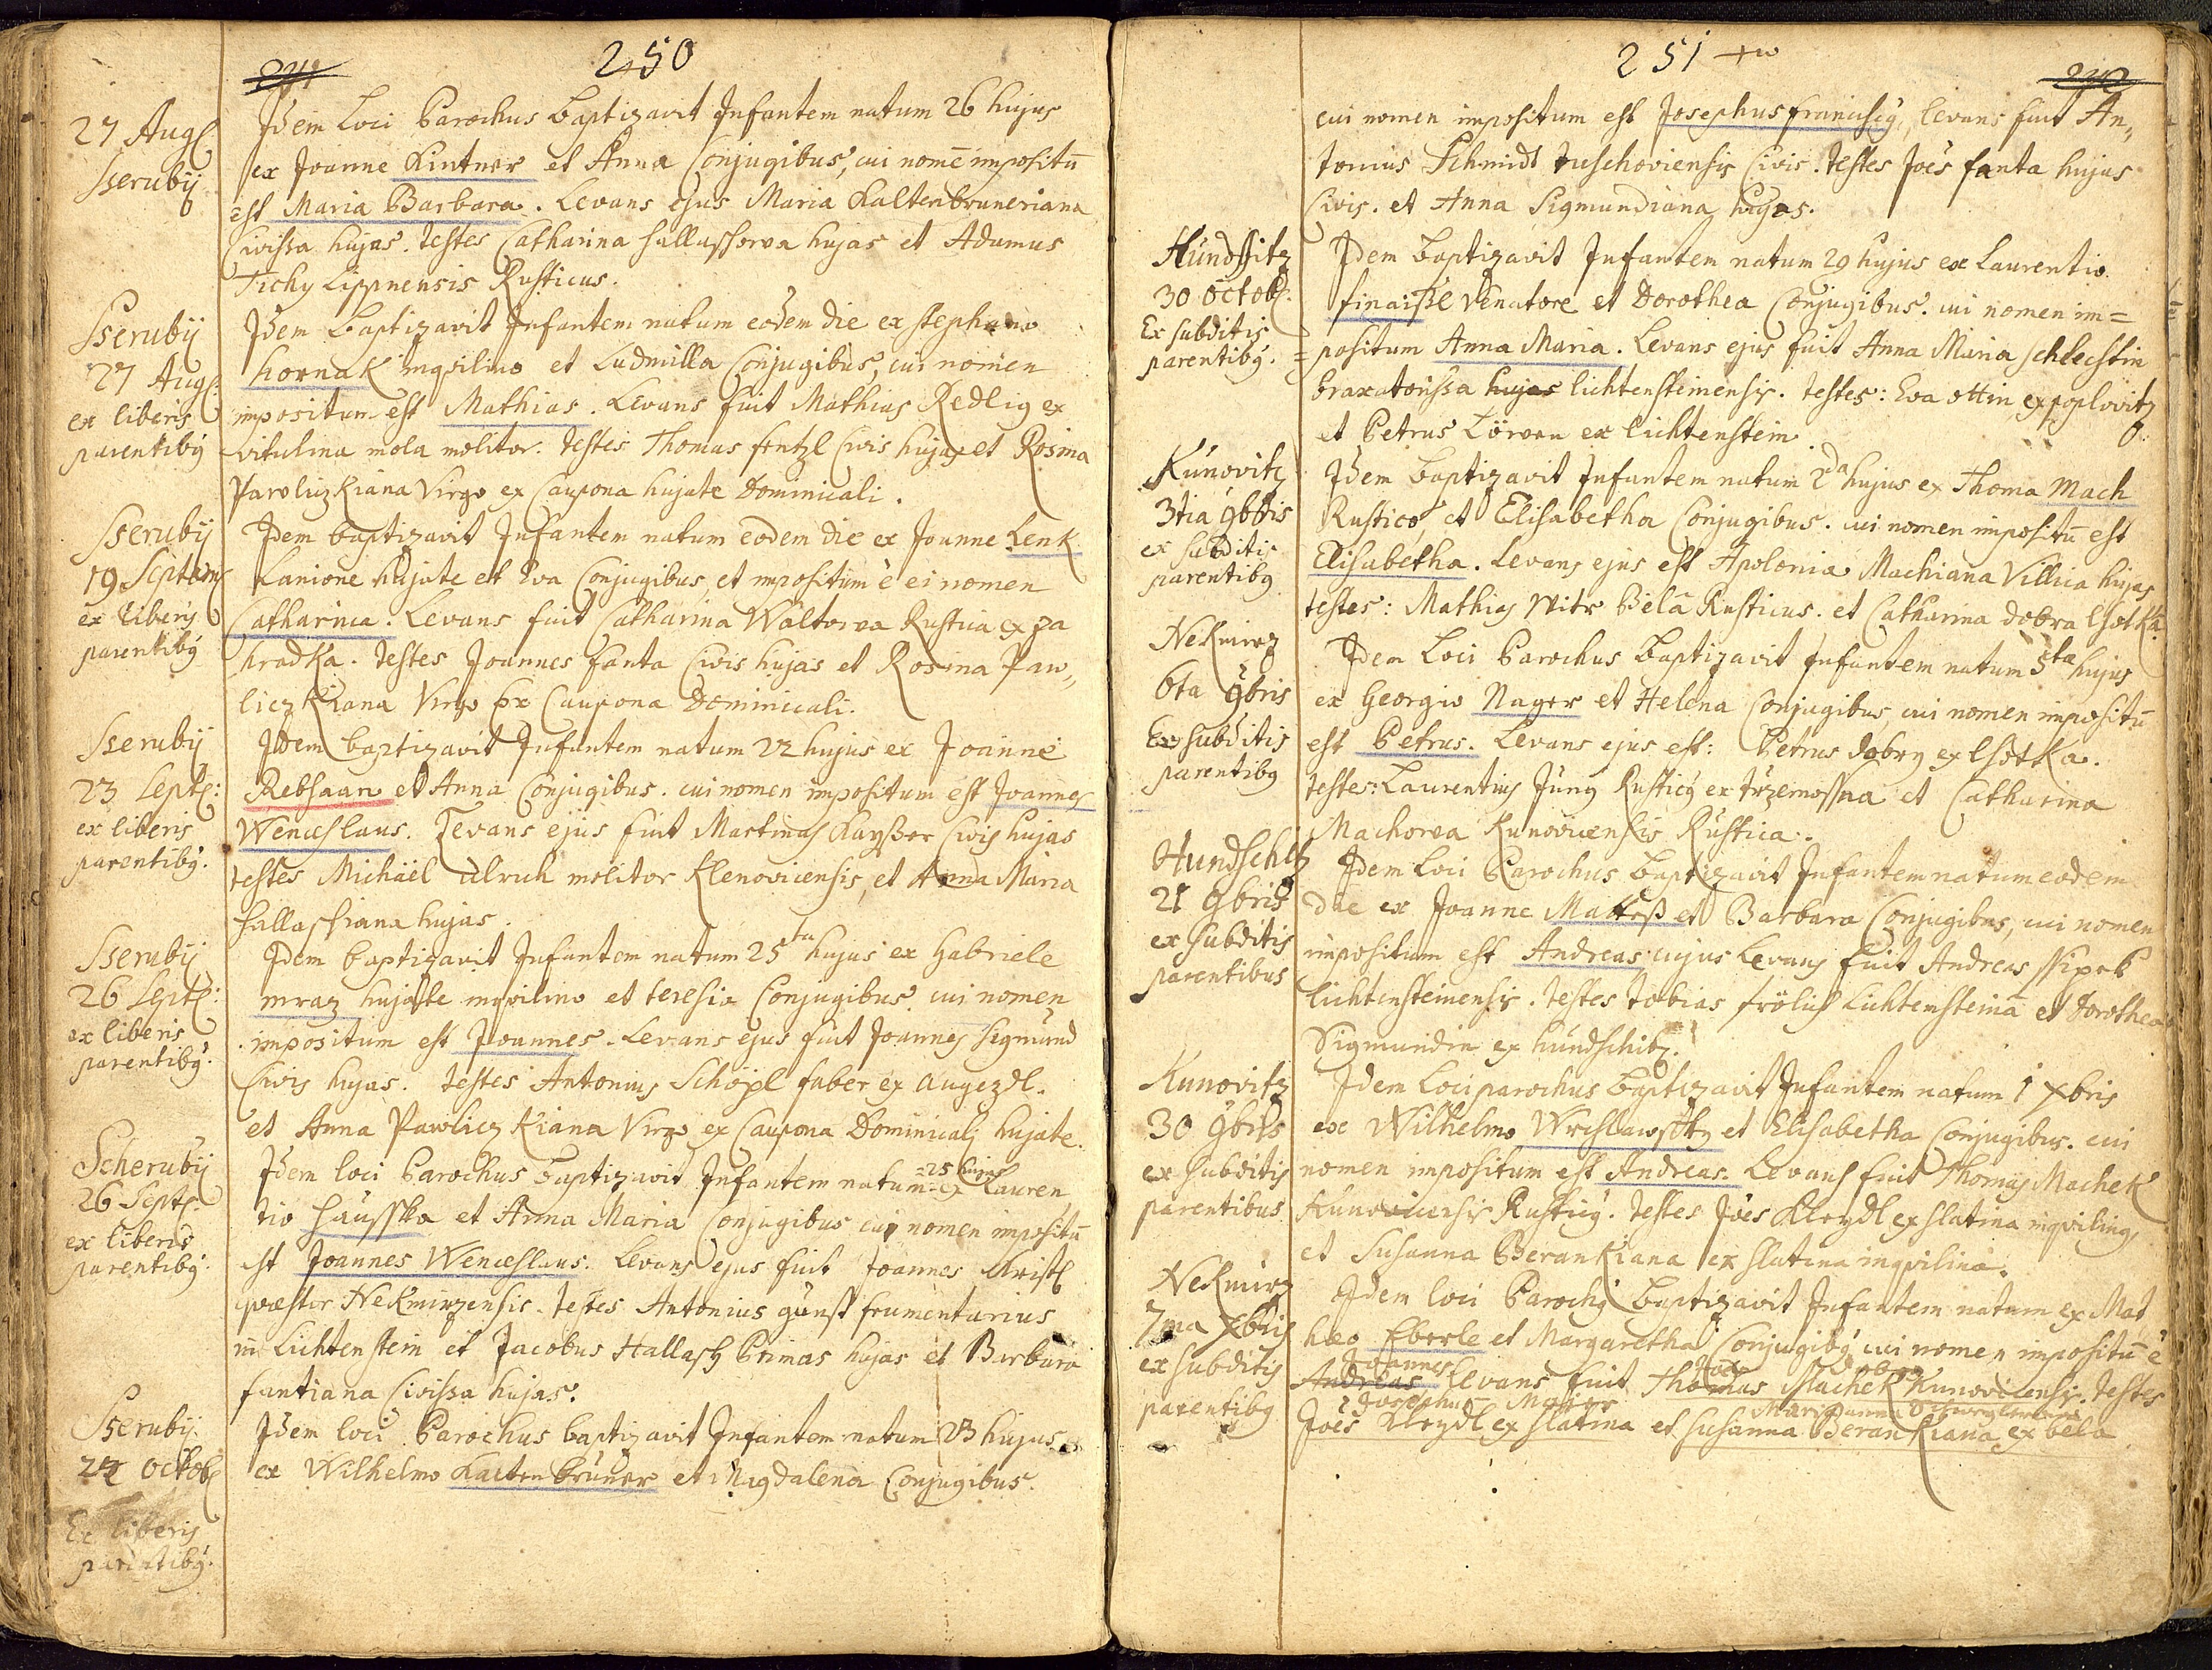 250
27 Aug
Sserubij
Idem Loci Parochus Baptizavit Infantem natum 26 hujus
ex Joanne Kintner et Anna Conjugibus, cui nomē impositū
est Maria Barbara. Levans ejus Maria Kaltenbruneriana
Civissa hujas. testes Catharina hallassowa hujas et Adamus
Tichy Lippnensis Rusticus.
Sserubij
27 Aug
ex liberis
parentibȝ
Idem Baptizavit Infantem natum eodem die ex stephano
hornak inqvilino et Ludmilla Conjugibus, cui nomen
impositum est Mathias. Levans fuit Mathias Redlig ex
vitulina mola molitor. testes Thomas fentzl Civis hujas et Rosina
Pawliczkiana Virgo ex Caupona hujate Dominicali.
Sserubij
19 Septem
ex liberis
parentibȝ
Idem baptizavit Infantem natum eodem die ex Joanne Lenk
Lanione hujate et Eva Conjugibus, et impositum ē ei nomen
Catharina. Levans fuit Catharina Waltowa Rustica ex za
hradka. testes Joannes fanta Civis hujas et Rosina Paw„
liczkiana Virgo ex Caupona Dominicali.
Sserubij
23 Sept:
ex liberis
parentibȝ.
Idem baptizavit Infantem natum 22 hujus ex Joanne
Rebsaan et Anna Conjugibus. cui nomen impositum est Joannes
Wenceslaus. Levans ejus fuit Martinus Kayßer Civis hujas
testes Michäel Ulrich molitor Klenovicensis, et Anna Maria
hallassiana hujas.
Sserubij
26 Sept:
ex liberis
parentibȝ.
Idem baptizavit Infantem natum 25ta hujus ex Gabriele
mraz hujate inqvilino et teresia Conjugibus cui nomen
impositum est Joannes. Levans ejus fuit Joannes Sigmund
Civis hujas. testes Antonius Schöpl faber ex augezdl.
et Anna Pawliczkiana Virgo ex Caupona Dominicali hujate.
Scherubij
26 Sept.
ex liberis
parentibȝ.
Idem loci Parochus baptizavit Infantem natum =25 hujus ex Lauren
tio Hausska et Anna Maria Conjugibus cui nomen impositū
est Joannes Wenceslaus. Levans ejus fuit Joannes Christ
qvæstor Nekmirzensis. testes Antonius Gunst frumentarius
in Lichtenstein et Jacobus Hallasch Primas hujas et Barbara
fantiana Civissa hujas.
Sserubij.
24 Octob
Ex liberis
parentibȝ.
Idem loci Parochus baptizavit Infantem natum 23 hujus
ex Wilhelmo Kaltenbruner et Magdalena Conjugibus.
251
cui nomen impositum est Josephus franciscȝ, levans fuit An„
tonius Schmidt tuschoviensis Civis. testes Joēs fanta hujas
Civis. et Anna Sigmundiana hujas.
Hundschitz
30 Octob.
Ex subditis
parentibȝ.
Idem baptizavit Infantem natum 29 hujus ex Laurentio
finaißl Venatore et Dorothea Conjugibus. cui nomen im=
=positum Anna Maria. Levans ejus fuit Anna Maria Schlechtin
braxatorissa hujas lichtensteinensis. testes: Eva ottin ex poplovitz
et Petrus Löwen ex lichtenstein.
Kunovitz
3tia 9bris
ex subditis
parentibȝ
Idem baptizavit Infantem natum 2da hujus ex Thoma Mach
Rustico et Elisabetha Conjugibus. cui nomen impositū est
Elisabetha. Levans ejus est Apolonia Machiana Villica hujas
testes: Mathias Witr Belā Rusticus. et Catharina dobra lhotka.
Nekmirz
6ta 9bris
Ex subditis
parentibȝ
Idem Loci Parochus Baptizavit Infantem natum 5ta hujus
ex Georgio Nager et Helena Conjugibus, cui nomen impositū
est Petrus. Levans ejus est: Petrus dobry ex lhotka.
testes: Laurentius Jung Rusticȝ ex trzemossna et Catharina
Machowa Kunovicensis Rustica.
Hundschitz
21 9bris
ex subditis
parentibus
Idem Loci Parochus Baptizavit Infantem natum eodem
die ex Joanne Matteß et Barbara Conjugibus, cui nomen
impositum est Andreas cujus Levans fuit Andreas ssipek
lichtensteinensis. testes tobias frölich Lichtensteinā et Dorothea
Sigmundin ex hundschitz.
Kunovitz
30 9bris
ex subditis
parentibus
Idem Loci parochus Baptizavit Infantem natum 1 Xbris
ex Wilhelmo Wrchlawsky et Elisabetha Conjugibus. cui
nomen impositum est Andreas. Levans fuit Thomas Machek
Kunovicensis Rusticȝ. testes Joēs Kleydl ex slatina inqvilinȝ,
et Susanna Berankiana ex slatina inqvilina.
Nekmirz
7ma Xbris
ex subditis
parentibȝ
Idem loci Parochȝ Baptizavit Infantem natum ex Mat
hæo Eberle et Margaretha Conjugibȝ cui nomen impositū ē
Joannes
Andreas Levans fuit Thomas Machek Kunovicensis. testes
Josephus Mayer Marianna
Joēs Kleydl ex slatina et Susanna Berankiana ex bela